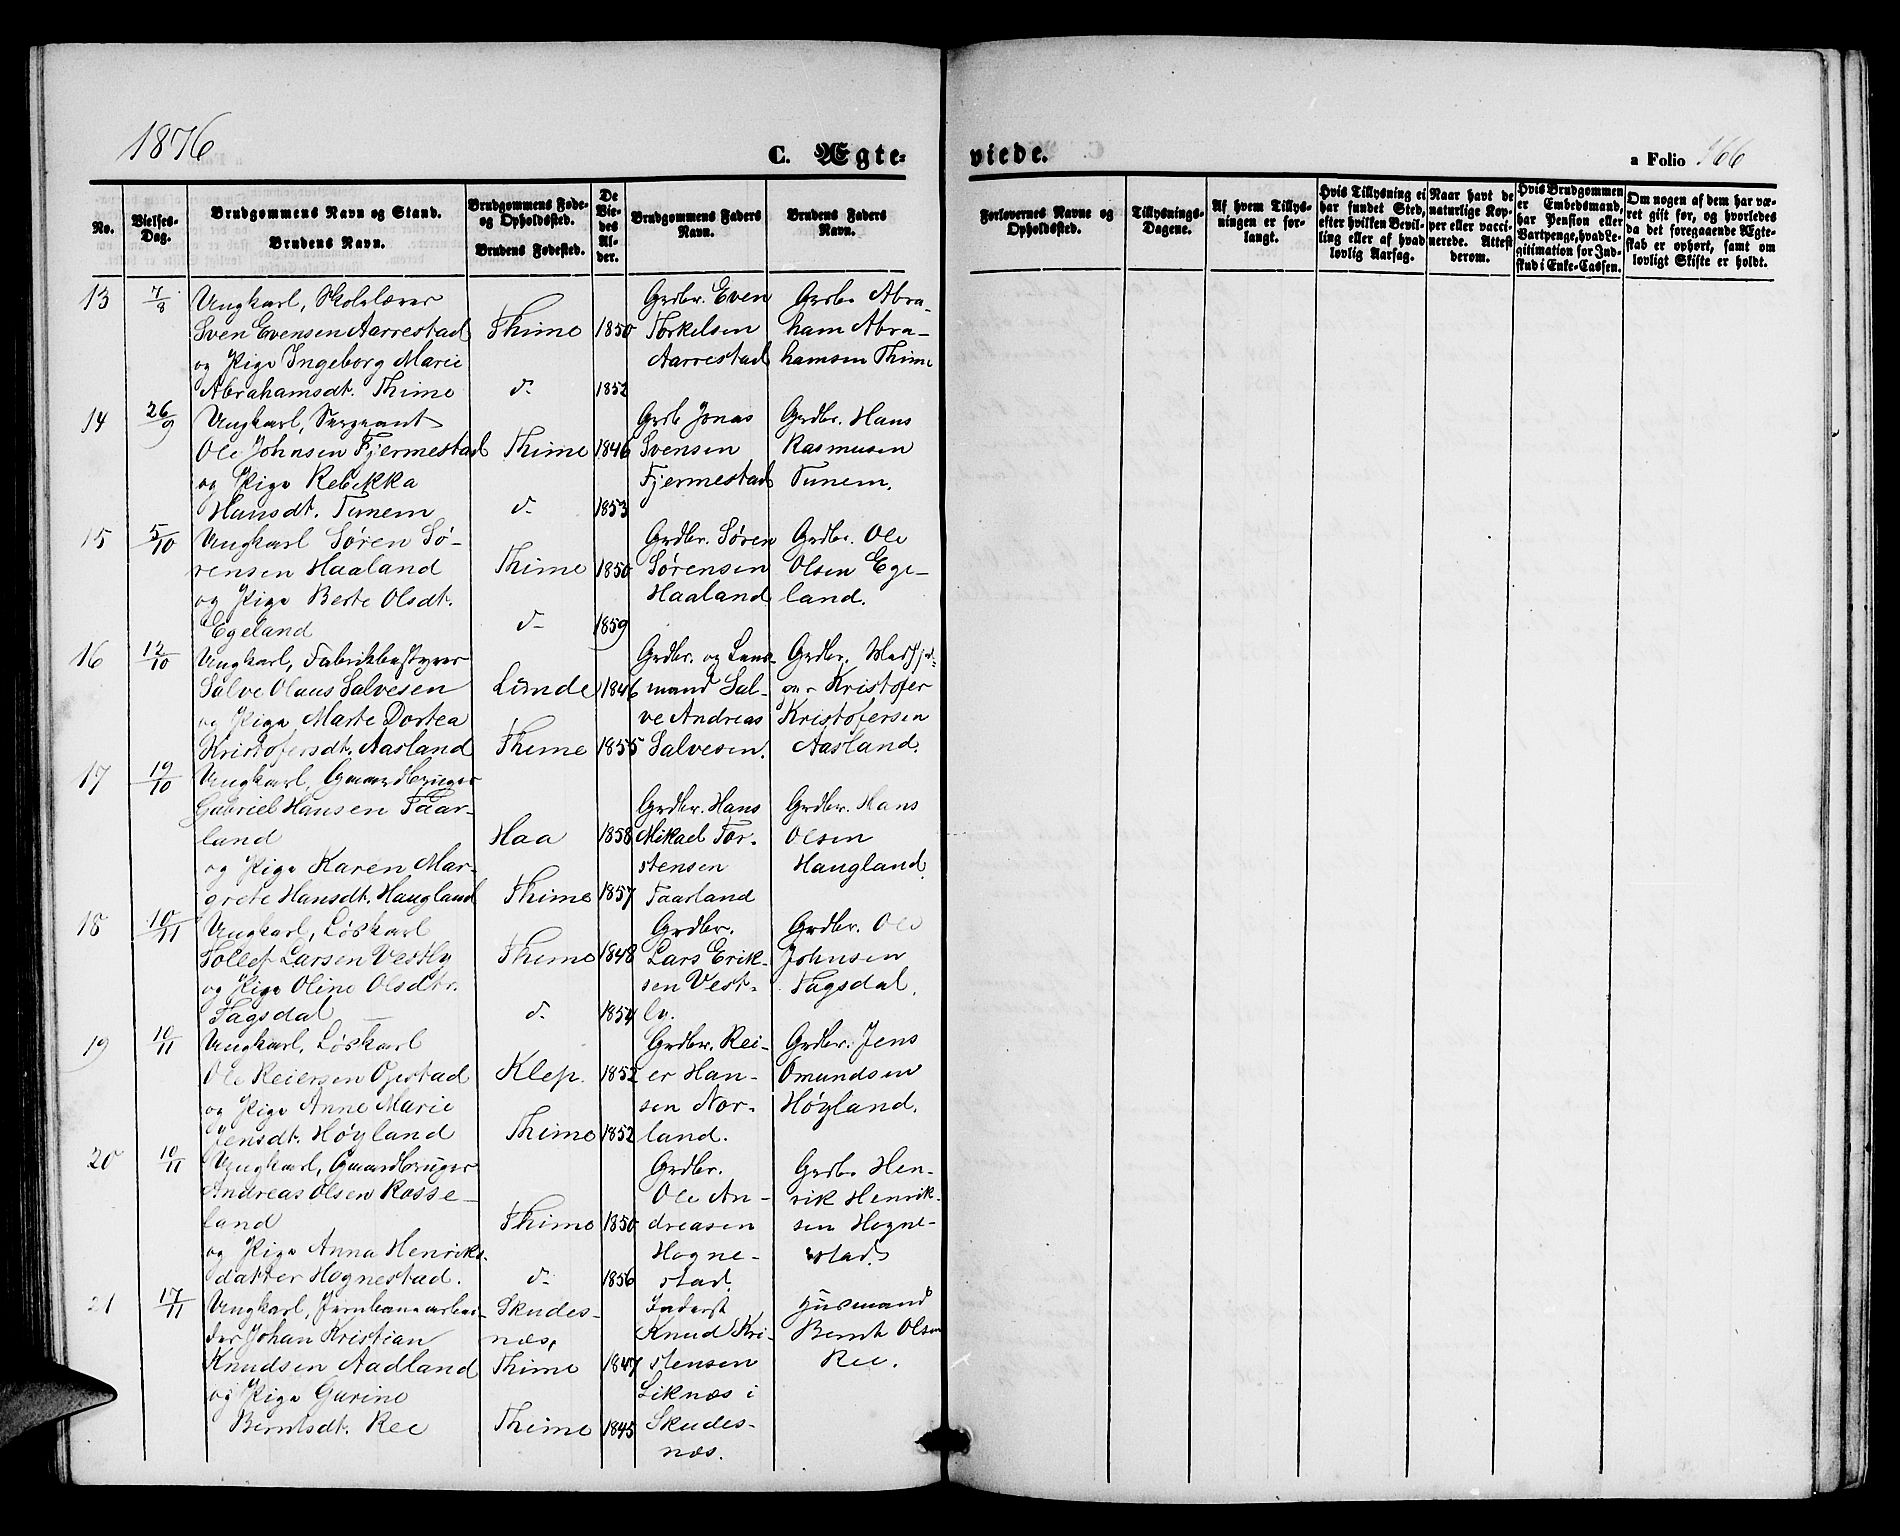 1876
C. Ægte-
viede.
a Folio 166
No.
Vielses-Dag.
Brudgommens Navn og Stand.
Brudens Navn.
Brudgommens Føde- og Opholdssted.
Brudens Fødested.
De Viedes Alder.
Brudgommens Faders Navn.
Brudens Faders Navn.
Forlovernes Navne og Opholdssted.
Tillysnings-Dagene.
Af hvem Tillysningen er forlangt.
Hvis Tillysning ei har fundet Sted, efter hvilken Bevilling eller af hvad lovlig Aarsag.
Naar havt de naturlige Kopper eller vaccinerede. Attest derom.
Hvis Brudgommen er Embedsmand, har Pension eller Vartpenge, hvad Legitimation for Indskud i Enke-Cassen.
Om nogen af dem har været gift før, og hvorledes da det foregaaende Ægteskab er ophørt, samt om lovligt Skifte er holdt.
13 7/8 Ungkarl, Skolelærer Grdbr. Even Grdbr Abra-
Sven Evensen Aarrestad Thime 1850 Torkelsen ham Abra-
og Pige Ingeborg Marie Aarrestad hamsen Thime
Abrahamsdt. Thime d. 1852
14 26/9 Ungkarl, Sergeant Grdb Jonas Grdbr. Hans
Ole Johnsen Fjermestad Thime 1846 Svensen Rasmusen
og Pige Rebekka Fjermestad Tunem.
Hansdt. Tunem d. 1853
15 5/10 Ungkarl Søren Sø- Grdbr. Søren Grdbr. Ole
rensen Haaland Thime 1850 Sørensen Olsen Ege-
og Pige Berte Olsdt. Haaland land.
Egeland d- 1859
16 12/10 Ungkarl, Fabrikbestyrer Grdbr. og Lens- Grdbr.
Salve Olaus Salvesen Lunde 1846 mand Sal- Kristofer
og Pige Marte Dortea ve Andreas Kristofersen
Kristofersdt. Aasland Thime 1855 Salvesen. Aasland.
17 19/10 Ungkarl, Gaardbruger
Gabriel Hansen Taar- Grdbr. Hans Grdbr. Hans
land Haa 1858 Mikael Tor- Olsen
og Pige Karen Mar- stensen Haugland.
grete Hansdt. Haugland Thime 1857 Taarland
18 10/11 Ungkarl, Løskarl Grdbr. Grdbr. Ole
Tollef Larsen Vestly Thime 1848 Lars Erik- Johnsen
og Pige Oline Olsdtr. sen Vest- Tagsdal.
Tagsdal d. 1854 ly.
19 10/11 Ungkarl, Løskarl Grdbr. Rei- Grdbr. Jens
Ole Reiersen Opstad Klep. 1852 er Han- Omundsen
og Pige Anne Marie sen Nor- Høyland.
Jensdt. Høyland Thime 1852 land.
20 10/11 Ungkarl, Gaardbruger Grdbr. Grdbr Hen-
Andreas Olsen Rosse- Ole An- rik Henrik-
land Thime 1850 dreasen sen Hogne-
og Pige Anna Henriks- Hogne- stad.
datter Hognestad. d- 1856 stad.
21 17/11 Ungkarl, Jernbanearbei- Skudes- Inderst Husmand
der Johan Kristian næs, Knud Kri- Bernt Olsen
Knudsen Aadland Thime 1847 stensen Ree.
og Pige Gurine Liknæs i
Berntsdt. Ree Thime 1845 Skudes-
næs.